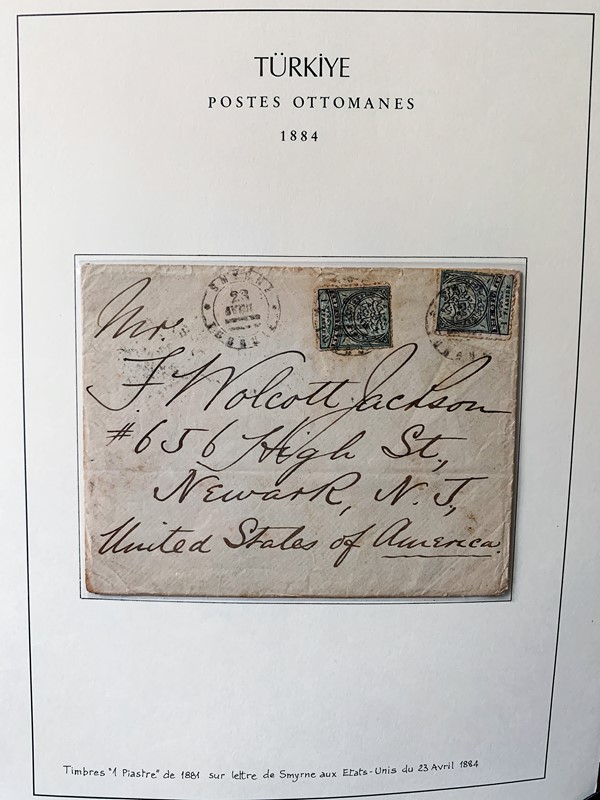 TÜRKİYE
POSTES OTTOMANES
1884
SMYRNE
23
AVRIL
Mrs.
F. Wolcott Jackson
#656 High St.,
Newark, N. J.,
United States of America.
Timbres "1 Piastre" de 1881 sur lettre de Smyrne aux Etats-Unis du 23 Avril 1884